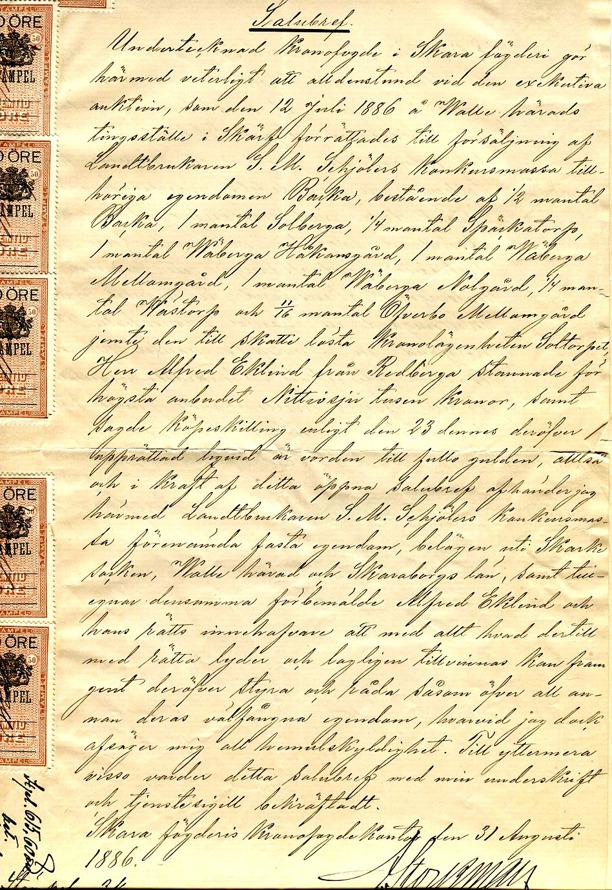 Salubref.
Undertecknad Kronofogde i Skara fögderi gör
härmed veterligt att alldenstund vid den exekutiva
auktion, som den 12 Juli 1886 å Walle härads
tingsställe i Skärf förrättades till försäljning af
Landtbrukaren S. M. Schjölers konkursmassa till-
höriga egendomen Backa, bestående af 1/2 mantal
Backa, 1 mantal Solberga, 1/4 mantal Spåkatorp,
1 mantal Wåberga Håkansgård, 1 mantal Wåberga
Mellomgård, 1 mantal Wåberga Nolgård, 1/4 man-
tal Wästorp och 11/16 mantal Öfverbo Mellomgård
jemte den till skatte lösta Kronolägenheten Soltorpet
Herr Alfred Eklind från Redberga stannade för
högsta anbudet Nittiosju tusen kronor, samt
sagde köpeskilling enligt den 23 dennes deröfver
upprättad liqvid är vorden till fullo gulden, alltså
och i kraft af detta öppna salubref afhänder jag
härmed Landtbrukaren S. M. Schjölers konkursmas-
sa förenämnda fasta egendom, belägen uti Skarke
socken, Walle härad och Skaraborgs län, samt till-
egnar densamma förbemälde Alfred Eklind och
hans rätts innehafvare att med allt hvad dertill
med rätta lyder och lagligen tillvinnas kan fram-
gent deröfver styra och råda såsom öfver all an-
nan deras välfångna egendom, hvarvid jag dock
afsäger mig all hemulskyldighet. Till yttermera
visso varder detta salubref med min underskrift
och tjenstesigill bekräftadt.
Skara fögderis Kronofogdekontor den 31 Augusti
1886.
ÖRE
STÄMPEL
50
ÖRE
STÄMPEL
50
ÖRE
STÄMPEL
50
ÖRE
STÄMPEL
50
ÖRE
STÄMPEL
50